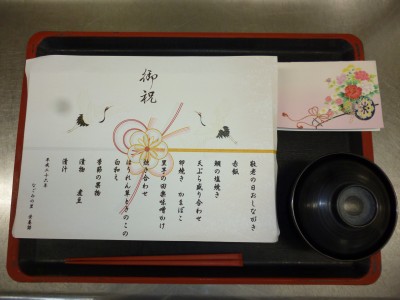 御祝
敬老の日おしながき
赤飯
鯛の塩焼き
天ぷら盛り合わせ
卵焼き かまぼこ
里芋の田楽味噌かけ
焚き合わせ
ほうれん草ときのこの
白和え
季節の果物
漬物 煮豆
清汁
平成二十六年